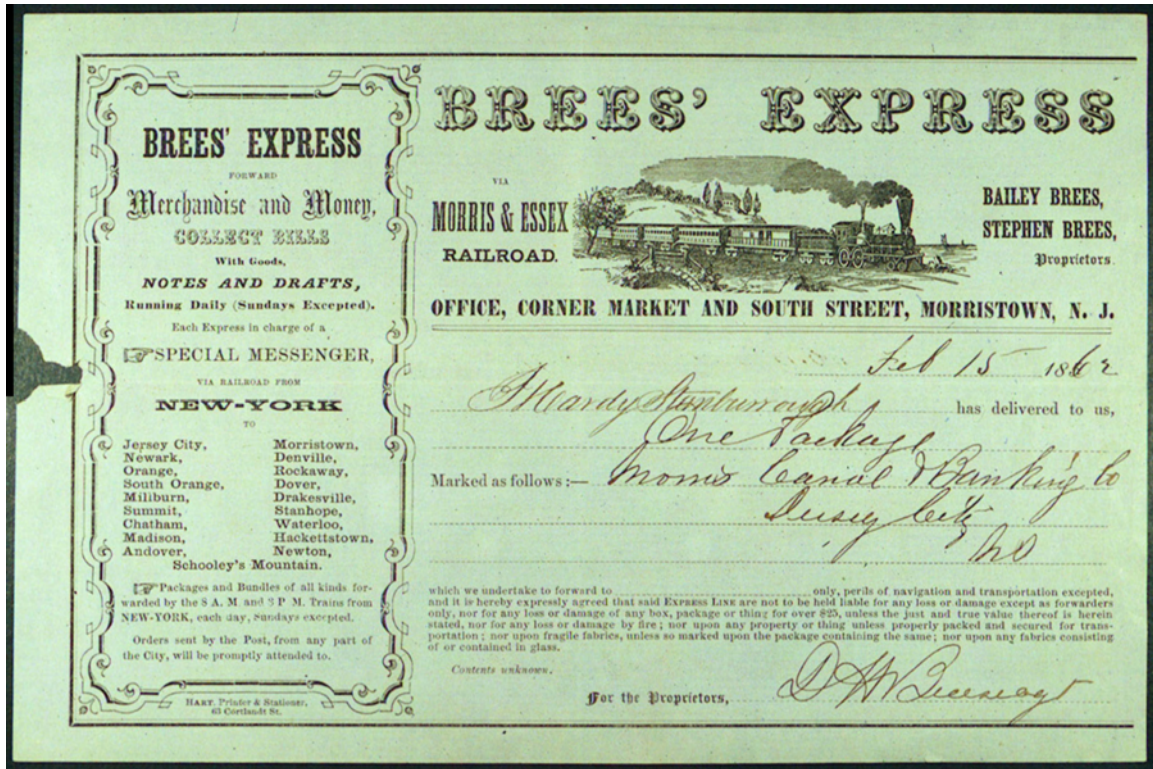 BREES' EXPRESS
FORWARD
Merchandise and Money,
COLLECT BILLS
With Goods,
NOTES AND DRAFTS,
Running Daily (Sundays Excepted).
Each Express in charge of a
SPECIAL MESSENGER,
VIA RAILROAD FROM
NEW-YORK
TO
Jersey City, Morristown,
Newark, Denville,
Orange, Rockaway,
South Orange, Dover,
Milburn, Drakesville,
Summit, Stanhope,
Chatham, Waterloo,
Madison, Hackettstown,
Andover, Newton,
Schooley's Mountain.
Packages and Bundles of all kinds for-
warded by the 8 A. M. and 3 P. M. Trains from
NEW-YORK, each day, Sundays excepted.
Orders sent by the Post, from any part of
the City, will be promptly attended to.
HART, Printer & Stationer,
63 Cortlandt St.
BREES' EXPRESS
VIA
MORRIS & ESSEX
RAILROAD.
BAILEY BREES,
STEPHEN BREES,
Proprietors.
OFFICE, CORNER MARKET AND SOUTH STREET, MORRISTOWN, N. J.
Feb 15 1862
Hardy Stanburrough has delivered to us,
One Package
Marked as follows:— Morris Canal & Banking Co
Jersey City
which we undertake to forward to only, perils of navigation and transportation excepted,
and it is hereby expressly agreed that said EXPRESS LINE are not to be held liable for any loss or damage except as forwarders
only, nor for any loss or damage of any box, package or thing for over $25, unless the just and true value thereof is herein
stated, nor for any loss or damage by fire; nor upon any property or thing unless properly packed and secured for trans-
portation; nor upon fragile fabrics, unless so marked upon the package containing the same; nor upon any fabrics consisting
of or contained in glass.
Contents unknown.
For the Proprietors, D H Brees agt